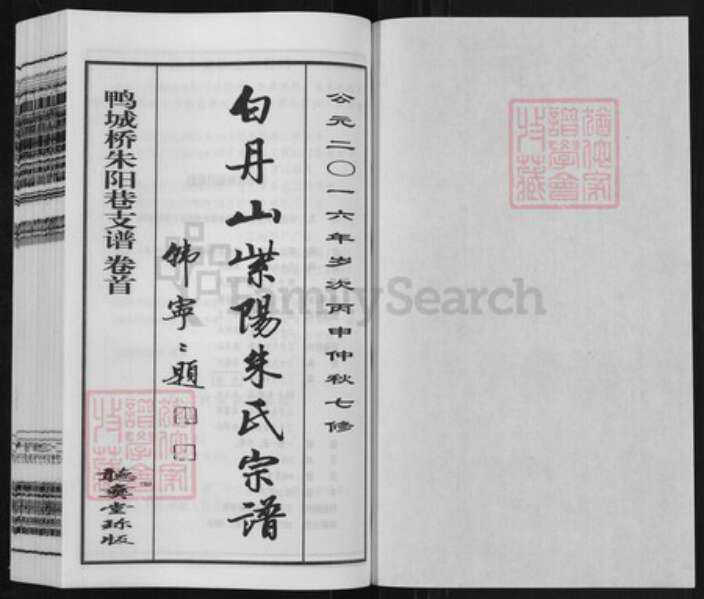 公元二〇一六年岁次丙申仲秋七修
白丹山紫陽朱氏宗譜
韩宁宁題
鸭城桥朱阳巷支谱 卷首
FamilySearch